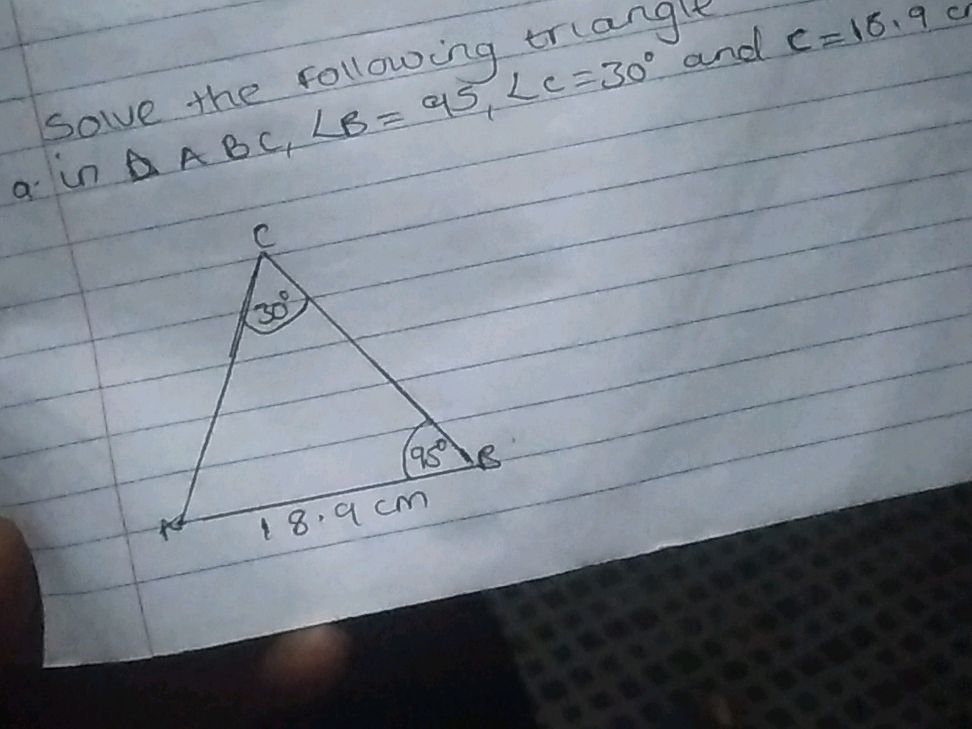 Solve the following triangle
a. in Δ A B C, ∠B = 95, ∠C = 30° and c = 18.9 cm
C
30°
95°
B
A
18.9 cm